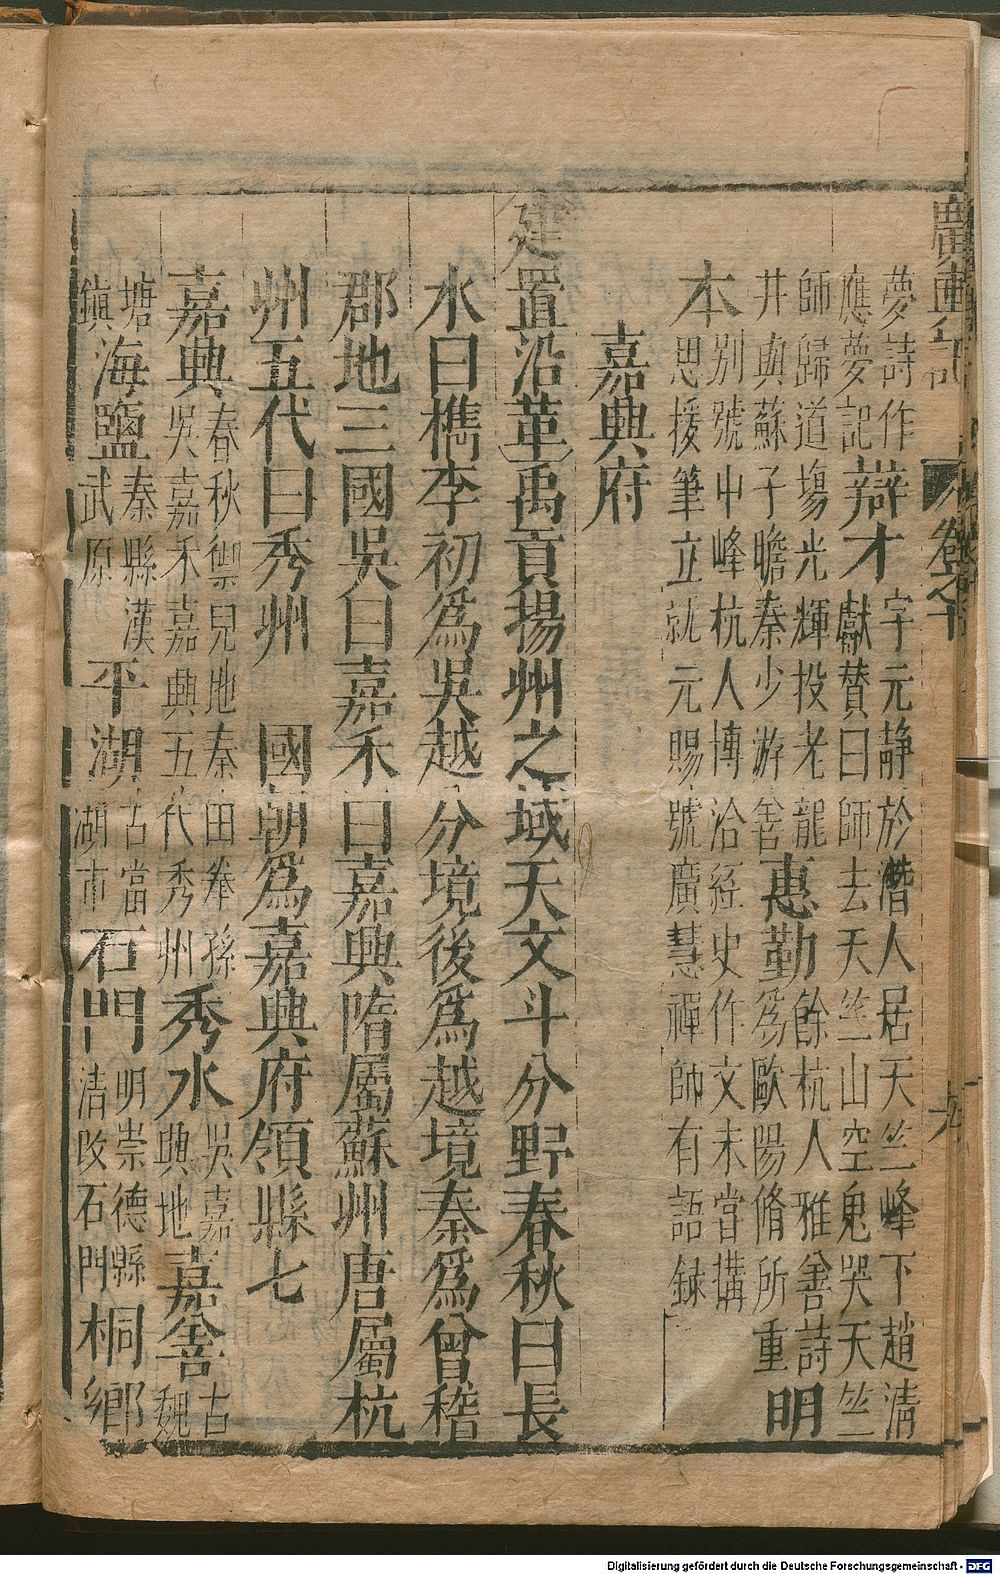 廣輿記
卷之十
九
夢詩作
應夢記辯才字元静於潛人居天竺峰下趙清
獻贊曰師去天竺山空鬼哭天竺
師歸道場光輝投老龍
井與蘇子瞻秦少游善惠勤餘杭人雅善詩
爲歐陽脩所重明
本別號中峰杭人博洽經史作文未嘗搆
思援筆立就元賜號廣慧禪師有語錄
嘉興府
建置沿革禹貢揚州之域天文斗分野春秋曰長
水曰檇李初爲吳越分境後爲越境秦爲會稽
郡地三國吳曰嘉禾曰嘉興隋屬蘇州唐屬杭
州五代曰秀州 國朝爲嘉興府領縣七
嘉興春秋禦兒地秦田拳孫
吳嘉禾嘉興五代秀州秀水吳嘉
興地嘉善古
魏
塘
鎮海鹽秦縣漢
武原平湖古當
湖市石門明崇德縣
清改石門桐鄉
Digitalisierung gefördert durch die Deutsche Forschungsgemeinschaft - DFG